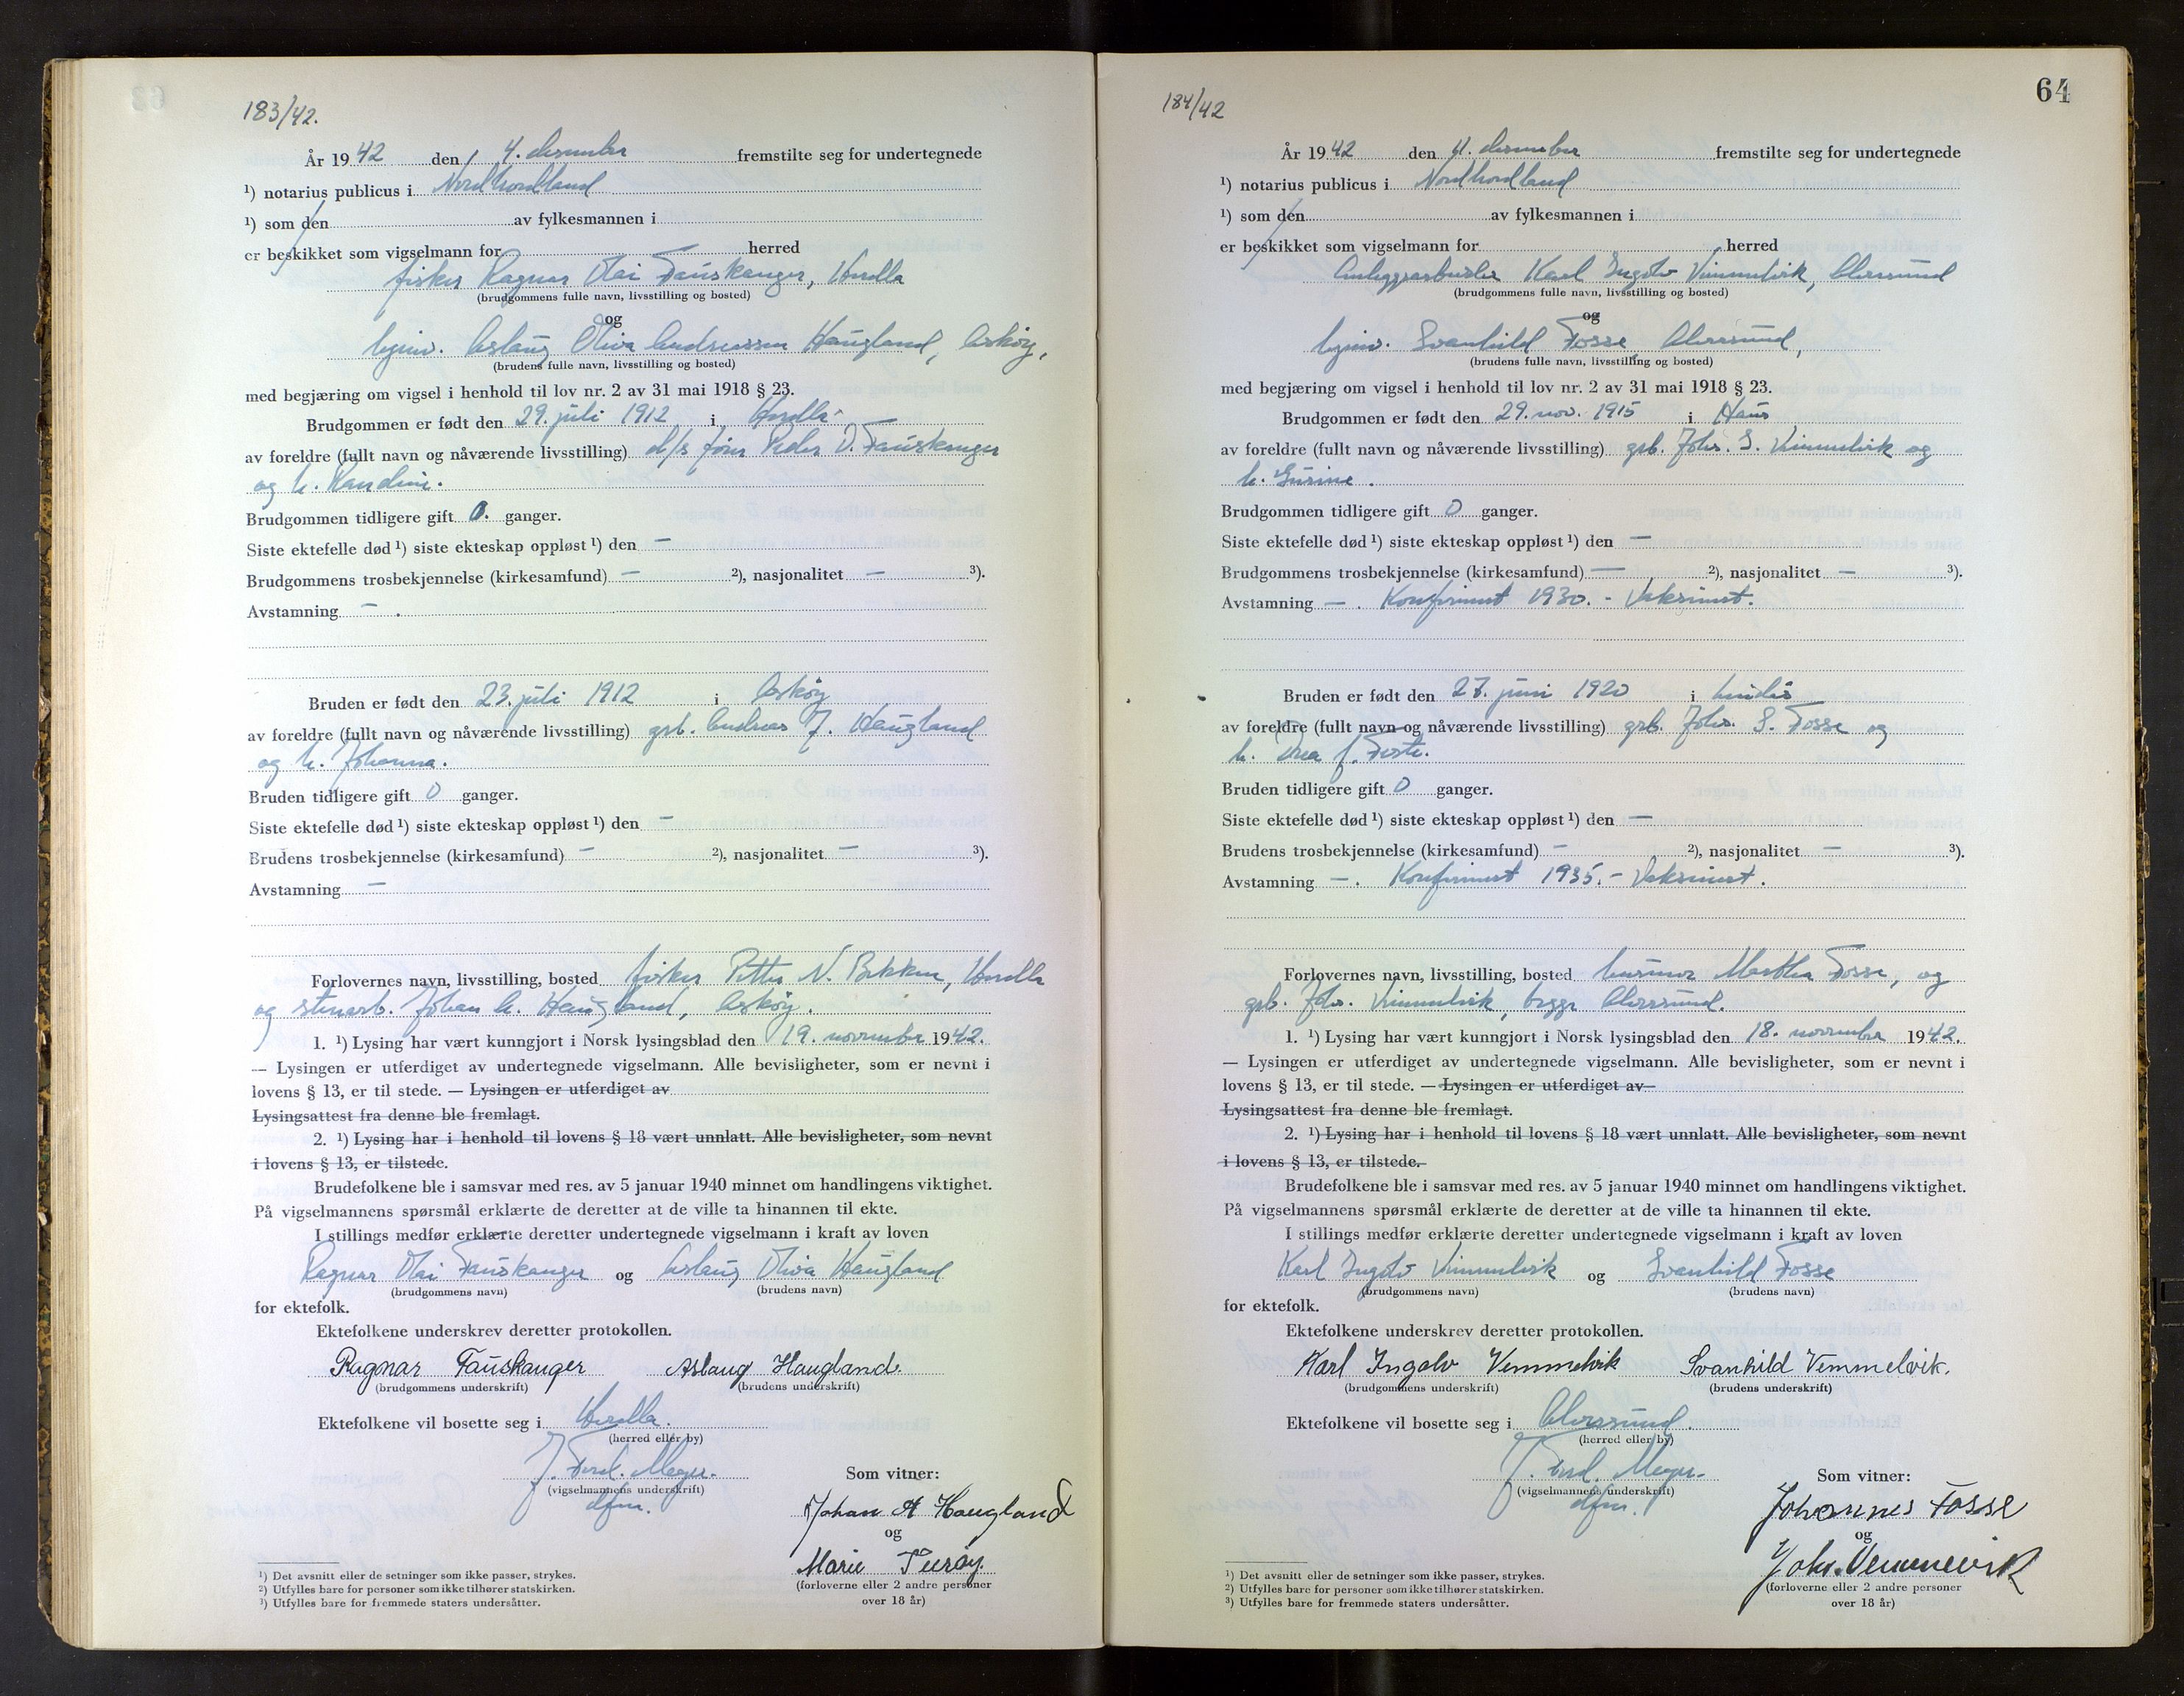 183/42.
År 1942 den 4. desember fremstilte seg for undertegnede
¹) notarius publicus i Nordhordland
¹) som den av fylkesmannen i
er beskikket som vigselmann for herred
fisker Ragnar Olai Fauskanger, Herdla
(brudgommens fulle navn, livsstilling og bosted)
og
hjemv. Aslaug Oliva Andreassen Haugland, Askøy,
(brudens fulle navn, livsstilling og bosted)
med begjæring om vigsel i henhold til lov nr. 2 av 31 mai 1918 § 23.
Brudgommen er født den 29. juli 1912 i Herdla
av foreldre (fullt navn og nåværende livsstilling) d/s fører Peder O. Fauskanger
og h. Randine.
Brudgommen tidligere gift 0. ganger.
Siste ektefelle død ¹) siste ekteskap oppløst ¹) den —
Brudgommens trosbekjennelse (kirkesamfund) — ²), nasjonalitet — ³).
Avstamning — .
Bruden er født den 23. juli 1912 i Askøy
av foreldre (fullt navn og nåværende livsstilling) grb. Andreas J. Haugland
og h. Johanna.
Bruden tidligere gift 0 ganger.
Siste ektefelle død ¹) siste ekteskap oppløst ¹) den —
Brudens trosbekjennelse (kirkesamfund) — ²), nasjonalitet — ³).
Avstamning —
Forlovernes navn, livsstilling, bosted fisker Petter N. Bakken, Herdla
og stenarb. Johan A. Haugland, Askøy.
1. ¹) Lysing har vært kunngjort i Norsk lysingsblad den 19. november 1942.
— Lysingen er utferdiget av undertegnede vigselmann. Alle bevisligheter, som er nevnt i
lovens § 13, er til stede. — Lysingen er utferdiget av
Lysingsattest fra denne ble fremlagt.
2. ¹) Lysing har i henhold til lovens § 18 vært unnlatt. Alle bevisligheter, som nevnt
i lovens § 13, er tilstede.
Brudefolkene ble i samsvar med res. av 5 januar 1940 minnet om handlingens viktighet.
På vigselmannens spørsmål erklærte de deretter at de ville ta hinannen til ekte.
I stillings medfør erklærte deretter undertegnede vigselmann i kraft av loven
Ragnar Olai Fauskanger og Aslaug Oliva Haugland
(brudgommens navn) (brudens navn)
for ektefolk.
Ektefolkene underskrev deretter protokollen.
Ragnar Fauskanger Aslaug Haugland.
(brudgommens underskrift) (brudens underskrift)
Ektefolkene vil bosette seg i Herdla.
(herred eller by)
J. Ferd. Meyer.
(vigselmannens underskrift)
dfm.
Som vitner:
Johan A Haugland
og
Marie Turøy.
(forloverne eller 2 andre personer
over 18 år)
¹) Det avsnitt eller de setninger som ikke passer, strykes.
²) Utfylles bare for personer som ikke tilhører statskirken.
³) Utfylles bare for fremmede staters undersåtter.
64
184/42
År 1942 den 4. desember fremstilte seg for undertegnede
¹) notarius publicus i Nordhordland
¹) som den av fylkesmannen i
er beskikket som vigselmann for herred
Anleggsarbeider Karl Ingolv Vemmelvik, Alversund
(brudgommens fulle navn, livsstilling og bosted)
og
hjemv. Svanhild Fosse Alversund,
(brudens fulle navn, livsstilling og bosted)
med begjæring om vigsel i henhold til lov nr. 2 av 31 mai 1918 § 23.
Brudgommen er født den 29. nov. 1915 i Haus
av foreldre (fullt navn og nåværende livsstilling) grb. Johs. S. Vemmelvik og
h. Gurine.
Brudgommen tidligere gift 0 ganger.
Siste ektefelle død ¹) siste ekteskap oppløst ¹) den —
Brudgommens trosbekjennelse (kirkesamfund) — ²), nasjonalitet — ³).
Avstamning — . Konfirmert 1930. - Vaksinert.
Bruden er født den 27. juni 1920 i Lindås
av foreldre (fullt navn og nåværende livsstilling) grb. Johs. S. Fosse og
h. f.
Bruden tidligere gift 0 ganger.
Siste ektefelle død ¹) siste ekteskap oppløst ¹) den —
Brudens trosbekjennelse (kirkesamfund) — ²), nasjonalitet — ³).
Avstamning — . Konfirmert 1935. - Vaksinert.
Forlovernes navn, livsstilling, bosted husmor Martha Fosse, og
grb. Johs. Vemmelvik, begge Alversund.
1. ¹) Lysing har vært kunngjort i Norsk lysingsblad den 18. november 1942.
— Lysingen er utferdiget av undertegnede vigselmann. Alle bevisligheter, som er nevnt i
lovens § 13, er til stede. — Lysingen er utferdiget av
Lysingsattest fra denne ble fremlagt.
2. ¹) Lysing har i henhold til lovens § 18 vært unnlatt. Alle bevisligheter, som nevnt
i lovens § 13, er tilstede.
Brudefolkene ble i samsvar med res. av 5 januar 1940 minnet om handlingens viktighet.
På vigselmannens spørsmål erklærte de deretter at de ville ta hinannen til ekte.
I stillings medfør erklærte deretter undertegnede vigselmann i kraft av loven
Karl Ingolv Vemmelvik og Svanhild Fosse
(brudgommens navn) (brudens navn)
for ektefolk.
Ektefolkene underskrev deretter protokollen.
Karl Ingolv Vemmelvik Svanhild Vemmelvik.
(brudgommens underskrift) (brudens underskrift)
Ektefolkene vil bosette seg i Alversund.
(herred eller by)
J. Ferd. Meyer.
(vigselmannens underskrift)
dfm.
Som vitner:
Johannes Fosse
og
Johs. Vemmelvik
(forloverne eller 2 andre personer
over 18 år)
¹) Det avsnitt eller de setninger som ikke passer, strykes.
²) Utfylles bare for personer som ikke tilhører statskirken.
³) Utfylles bare for fremmede staters undersåtter.